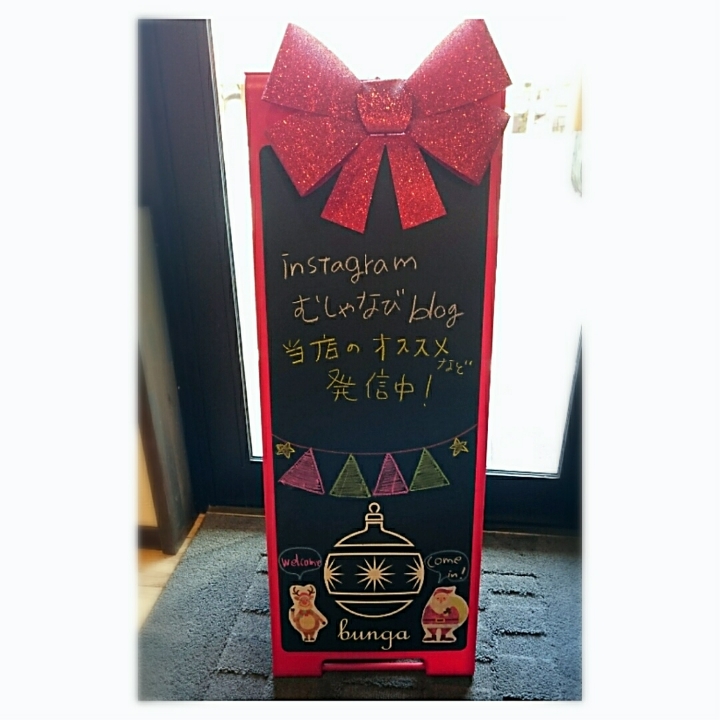 instagram
むしゃなび blog
当店のオススメ
など
発信中!
welcome
come
in!
bunga